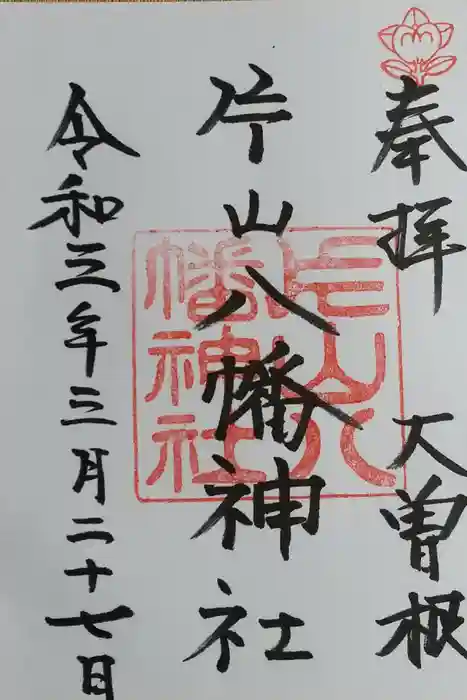 奉拝 大曽根
片山八幡神社
片山八幡神社
令和三年三月二十七日